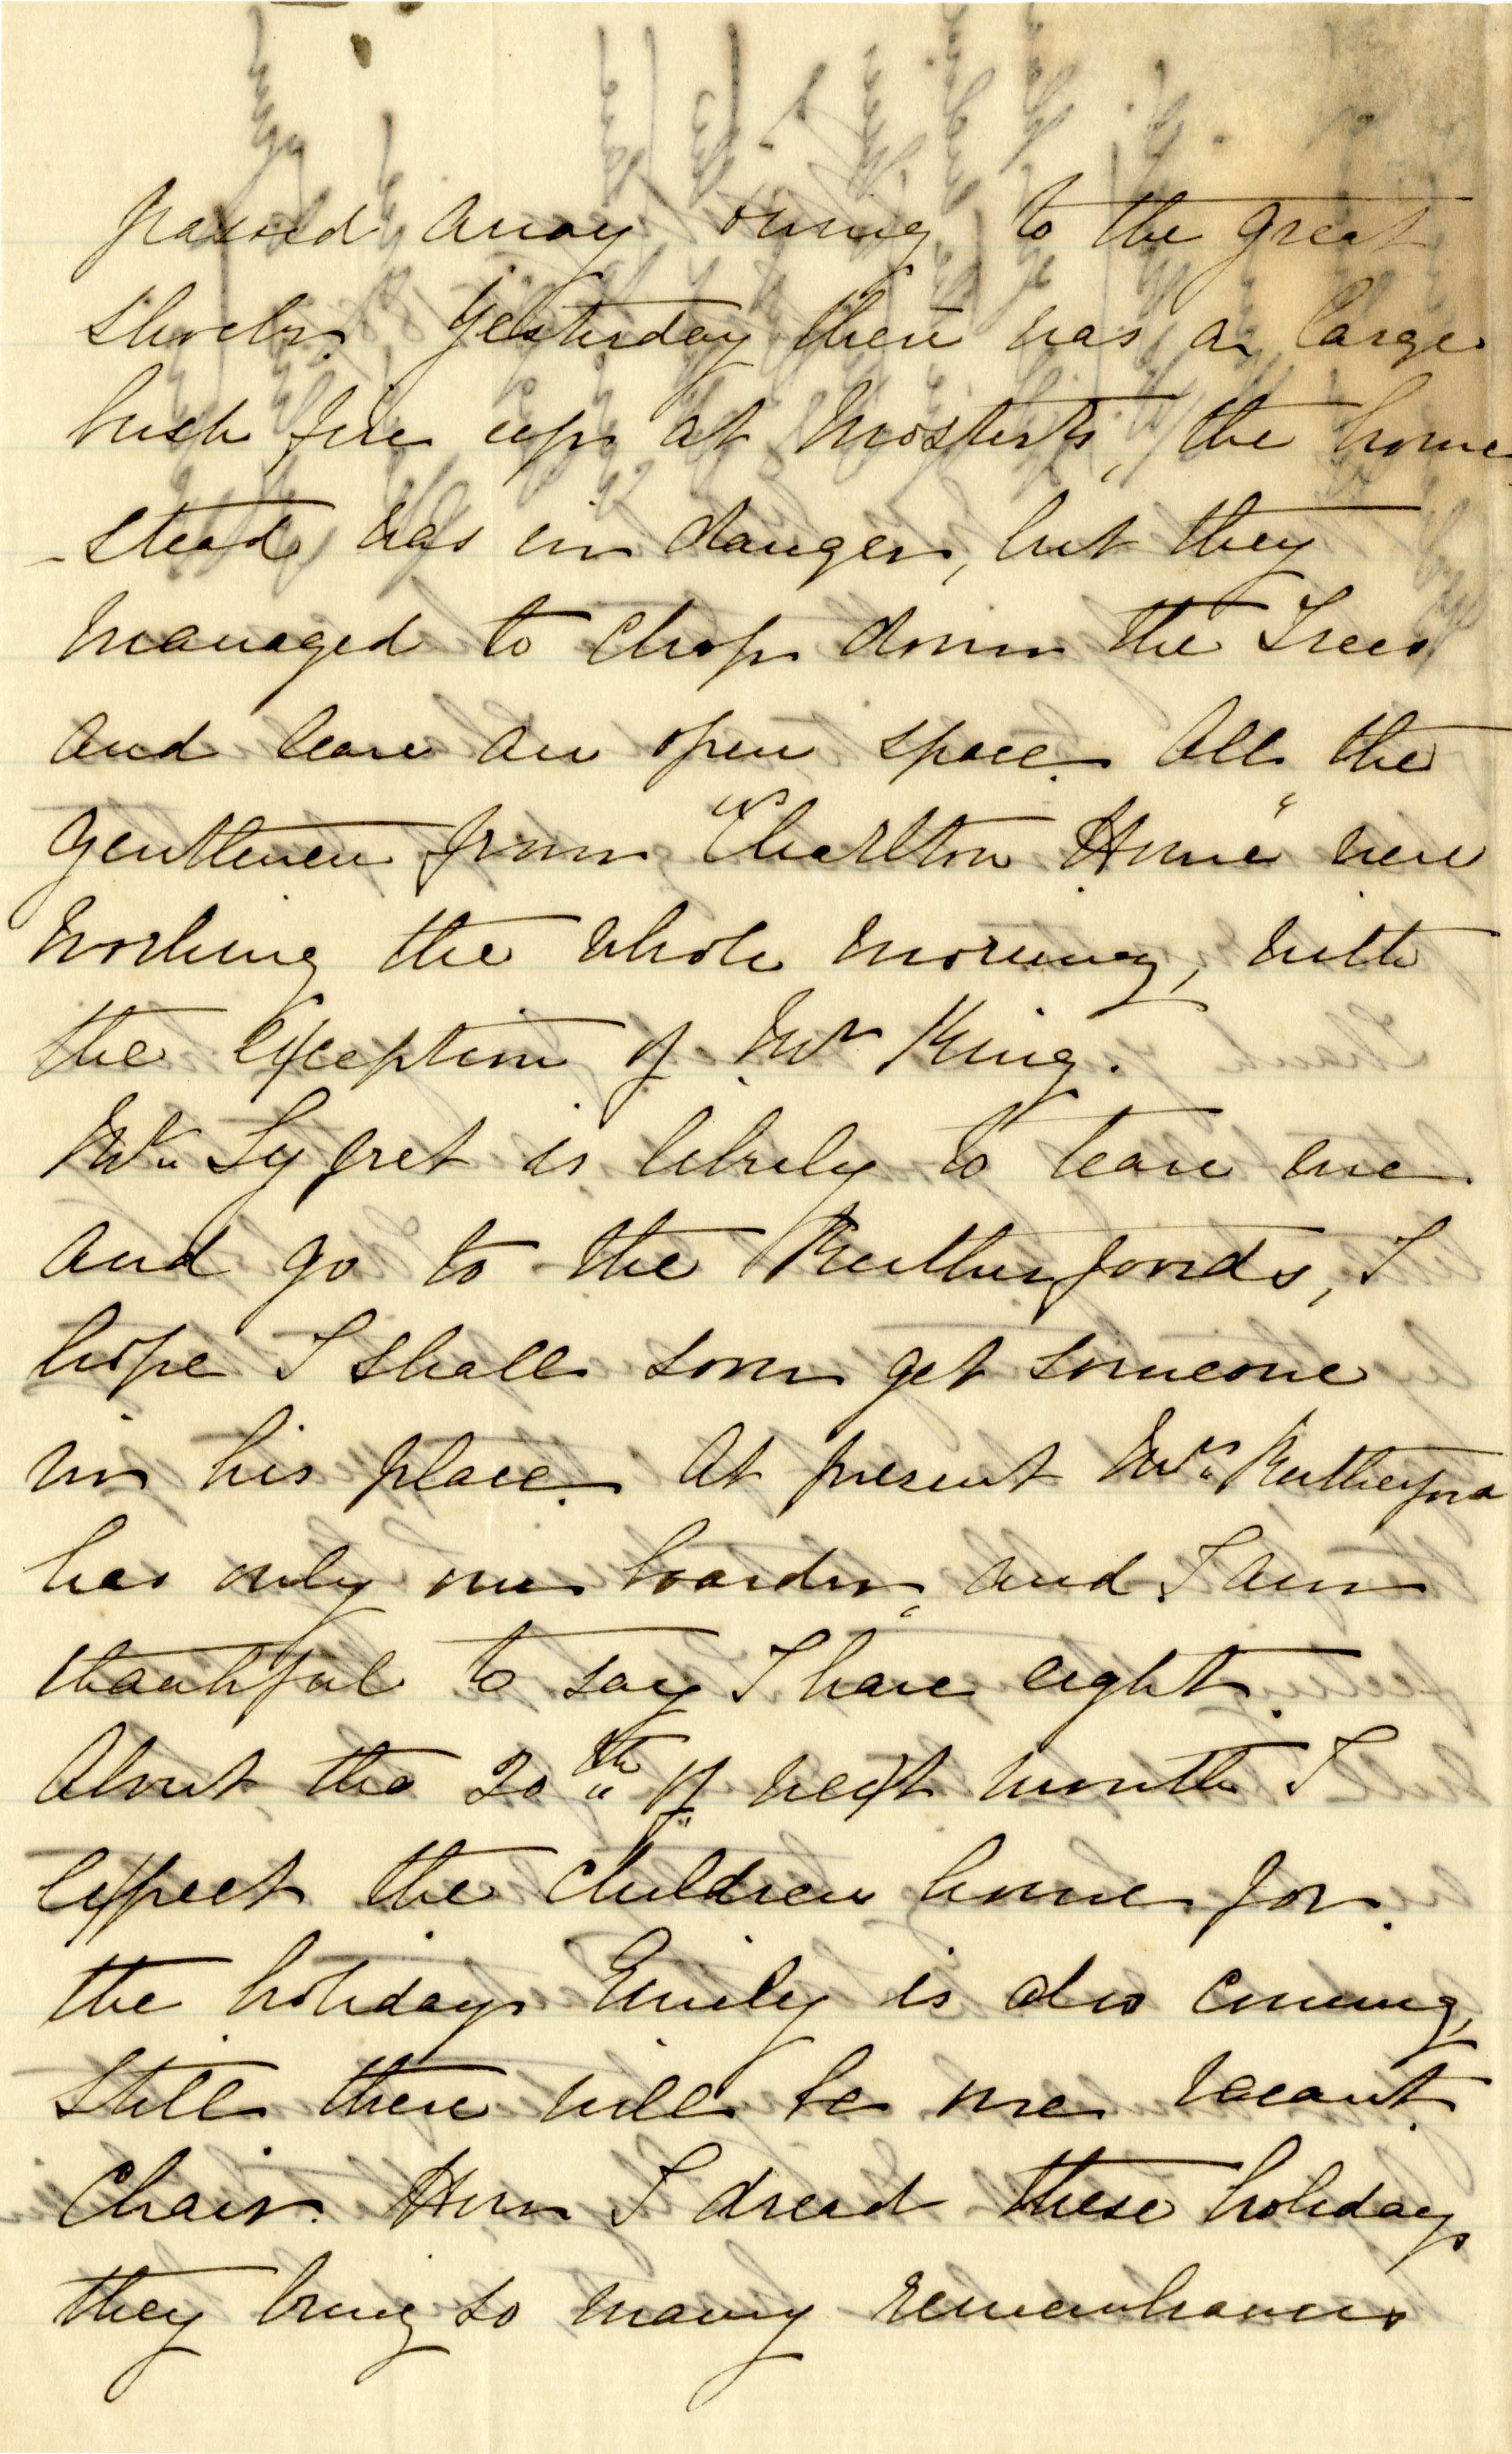 passed away owing to the great
shock. Yesterday there was a large
bush fire up at Mosterts, the home
-stead was in danger, but they
managed to chop down the Trees
and leave an open space. All the
gentlemen from "Charlton House" were
working the whole morning, with
the exception of Mr King.
Mr. Sy fret is likely to leave me
and go to the Rutherfoords, I
hope I shall soon get someone
in his place. At present Mrs. Rutherford
has only one boarder, and I am
thankful to say I have eight.
About the 20th of next month I
expect the children home for
the holidays Emily is also coming,
still there will be one vacant
Chair. How I dread these holidays
they bring so many remembrances